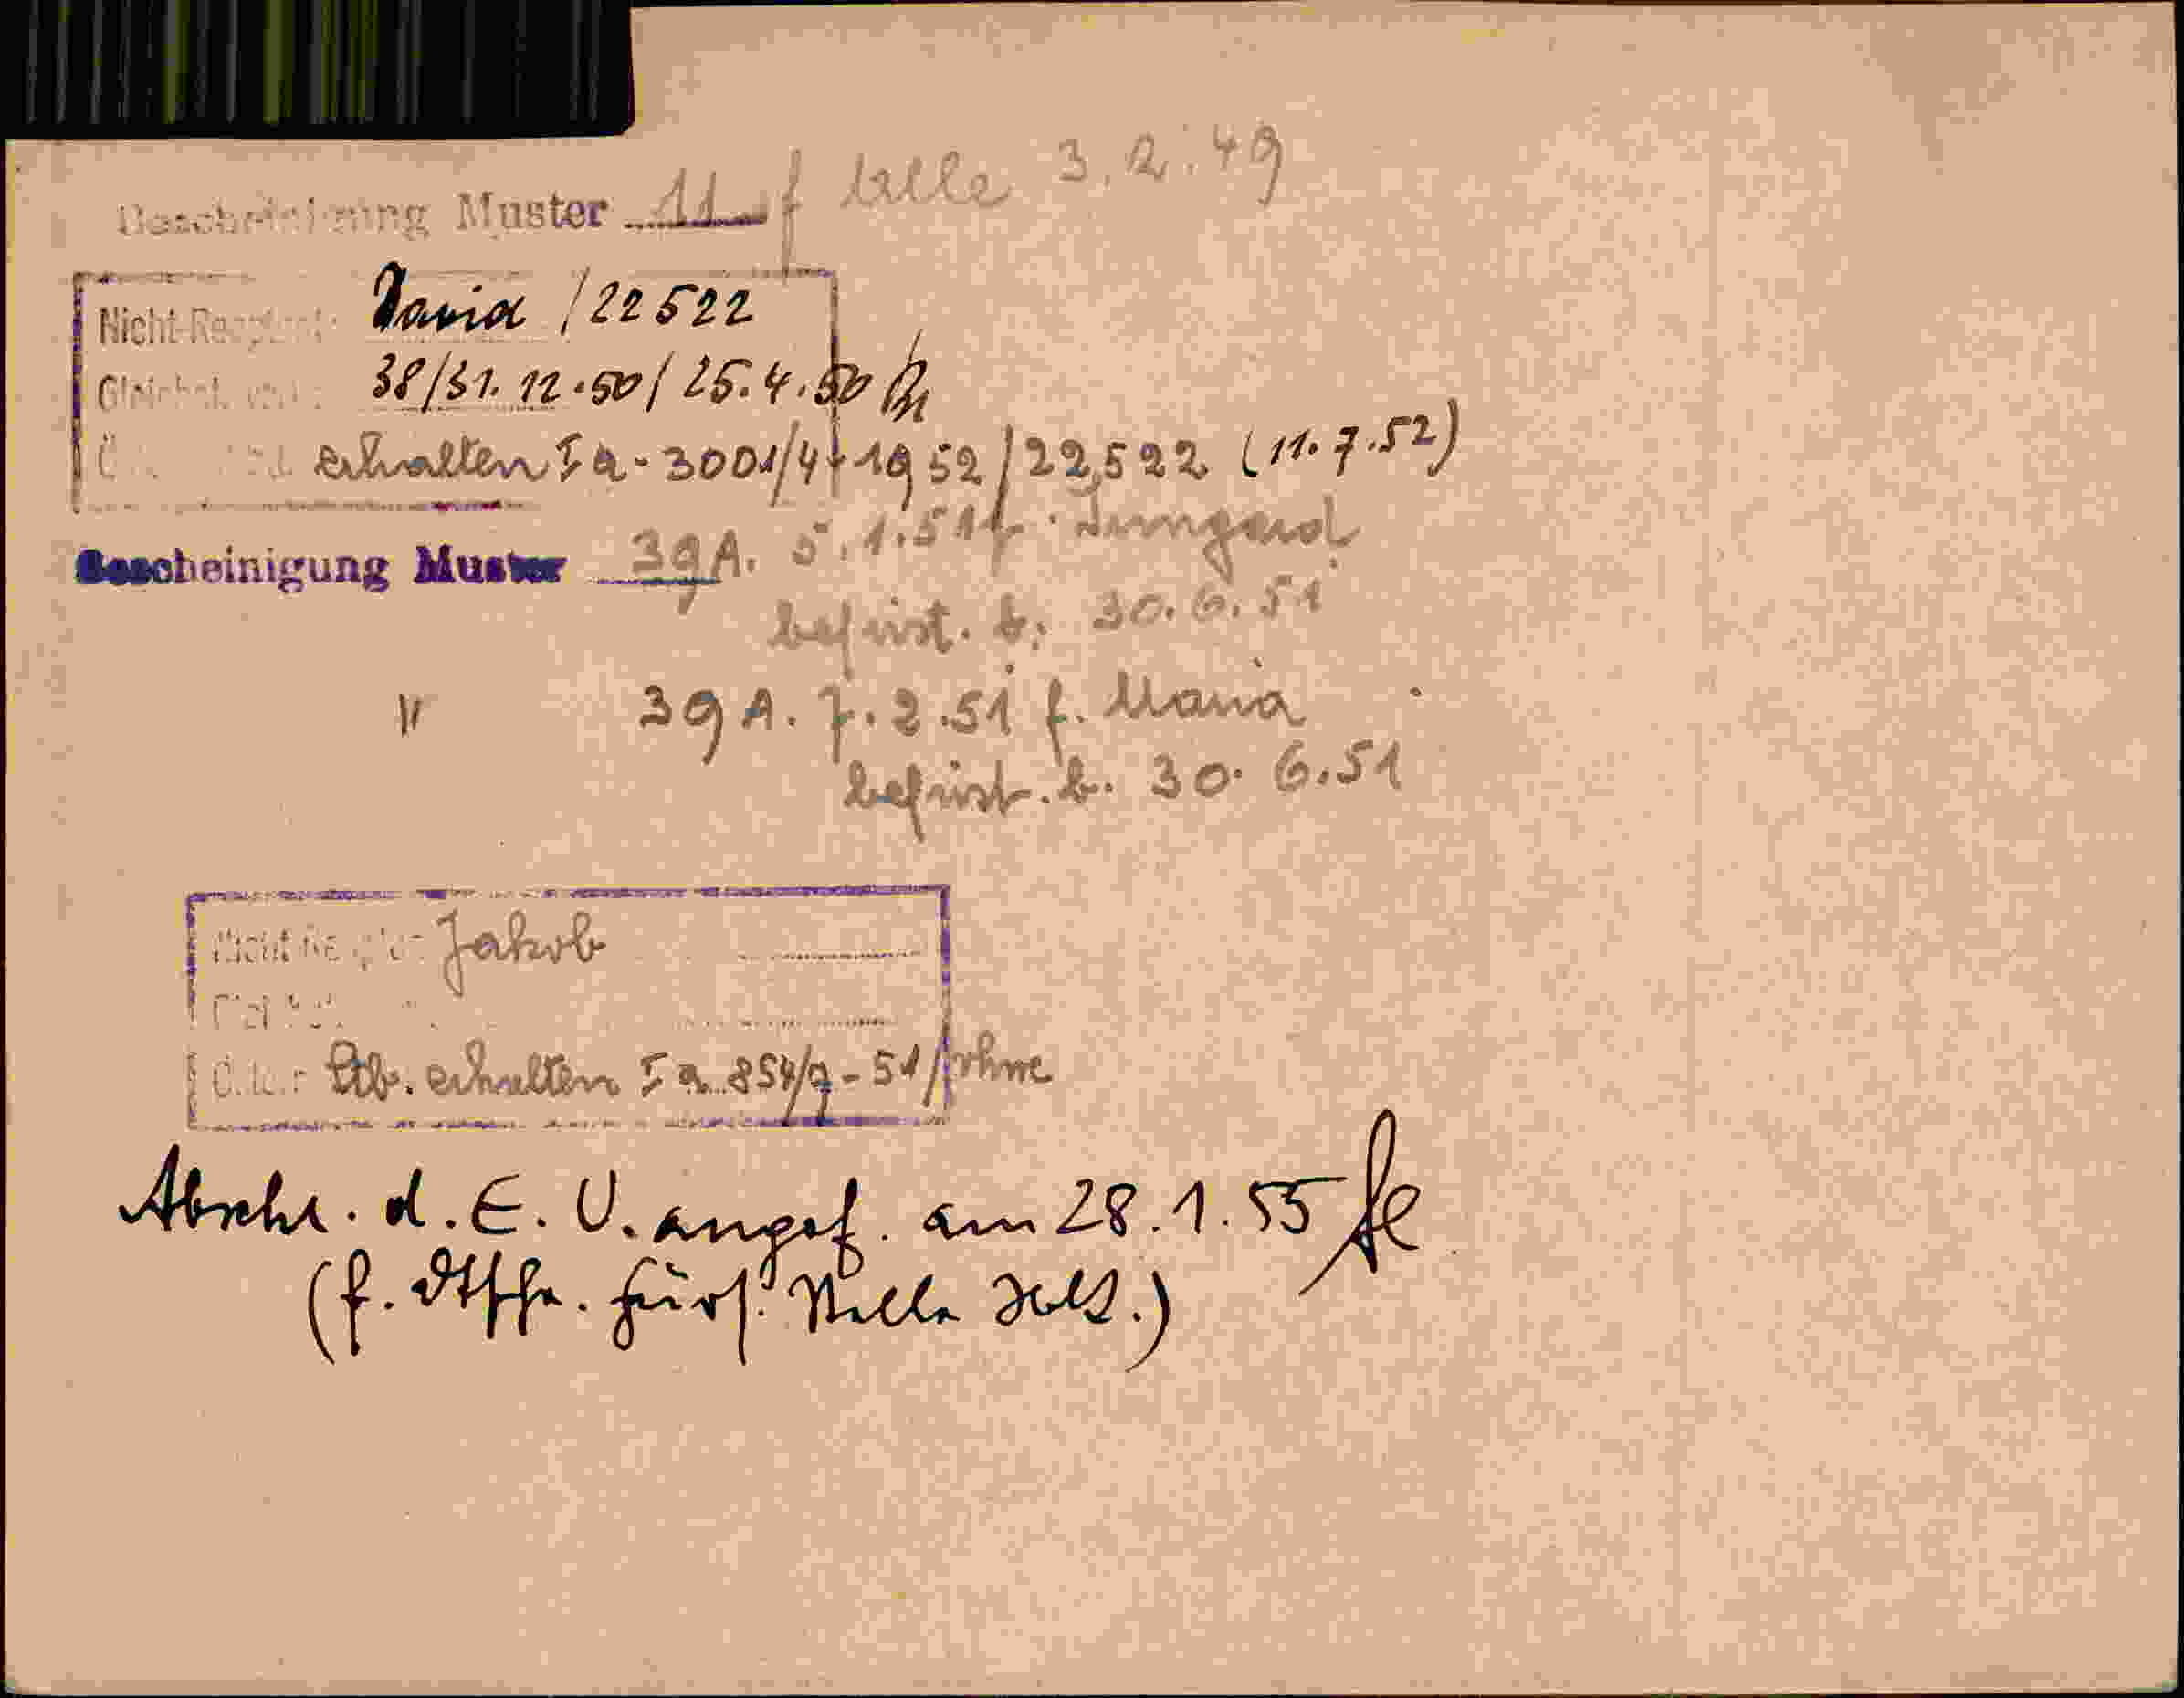 Bescheinigung Muster 11 f alle 3.2.49
Nicht-Reoptant: David / 22522
38/31.12.50/25.4.50
erhalten I a - 3001/4-1952/22522 (11.7.52)
Bescheinigung Muster 39 A. 5.1.51 f. Irmgard
befrist. b. 30.6.51
" 39 A. 7.2.51 f. Maria
befrist. b. 30.6.51
Jakob
Stb. erhalten I a 854/9-51/ohne
Abschr. d. E. U. angef. am 28.1.55
(f. Dtsche. Fürs. Stelle